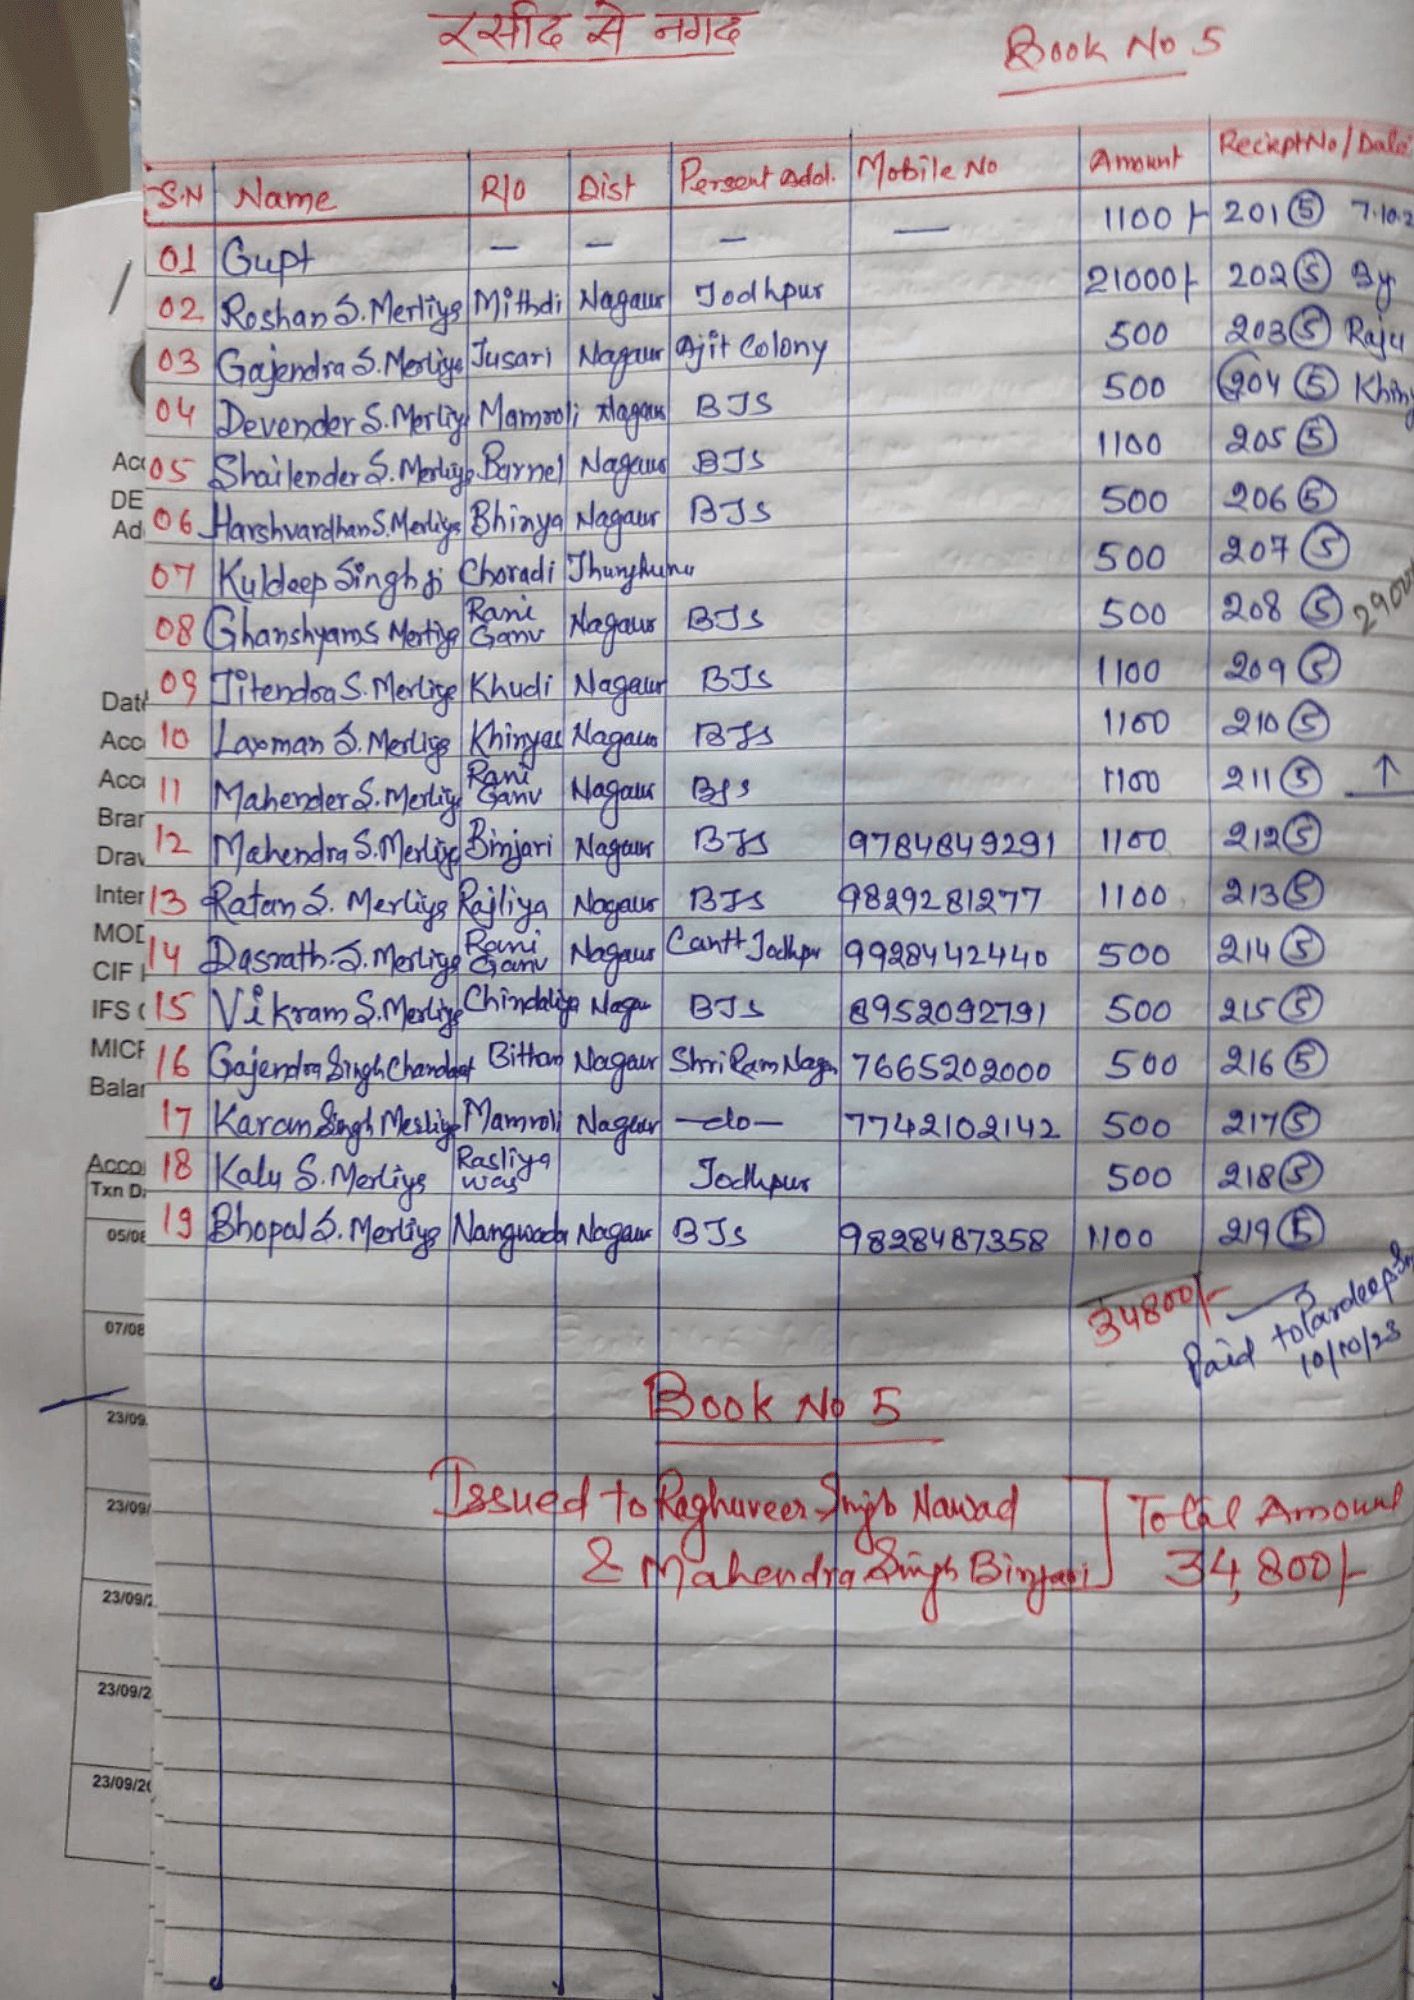 रसीद से नगद
Book No 5
S.N Name R/o Dist Persent Add. Mobile No Amount Reciept No / Date
01 Gupt — — — — 1100/- 201 (5) 7.10.2
02 Roshan S. Mertiya Mithdi Nagaur Jodhpur 21000/- 202 (5) By
03 Gajendra S. Mertiya Jusari Nagaur Ajit Colony 500 203 (5) Raju
04 Devender S. Mertiya Mamroli Nagaur BJS 500 204 (5) Khin
05 Shailender S. Mertiya Barnel Nagaur BJS 1100 205 (5)
06 Harshvardhan S. Mertiya Bhinya Nagaur BJS 500 206 (5)
07 Kuldeep Singh Ji Choradi Jhunjhunu 500 207 (5)
08 Ghanshyam S Mertiya Rani Ganv Nagaur BJS 500 208 (5) 29000
09 Jitendra S. Mertiya Khudi Nagaur BJS 1100 209 (5)
10 Laxman S. Mertiya Khinyas Nagaur BJS 1100 210 (5)
11 Mahender S. Mertiya Rani Ganv Nagaur BJS 1100 211 (5) ↑
12 Mahendra S. Mertiya Binjari Nagaur BJS 9784849291 1100 212 (5)
13 Ratan S. Mertiya Rajliya Nagaur BJS 9829281277 1100 213 (5)
14 Dasrath. S. Mertiya Rani Ganv Nagaur Cantt Jodhpur 9928442440 500 214 (5)
15 Vikram S. Mertiya Chindaliya Nagau BJS 8952092791 500 215 (5)
16 Gajendra Singh Chandawat Bithan Nagaur Shri Ram Nagar 7665202000 500 216 (5)
17 Karan Singh Mertiya Mamroli Nagaur —do— 7742102142 500 217 (5)
18 Kalu S. Mertiya Rasliya was Jodhpur 500 218 (5)
19 Bhopal S. Mertiya Nangwada Nagaur BJS 9828487358 1100 219 (5)
34800/-
Paid to Pardeep
10/10/23
Book No 5
Issued to Raghuveer Singh Nawad
& Mahendra Singh Binjari
Total Amount
34,800/-
Acc
DE
Ad
Date
Acc
Acc
Bran
Draw
Inter
MOD
CIF
IFS C
MICR
Balan
Acco
Txn Da
05/08
07/08
23/09
23/09/
23/09/2
23/09/2
23/09/20